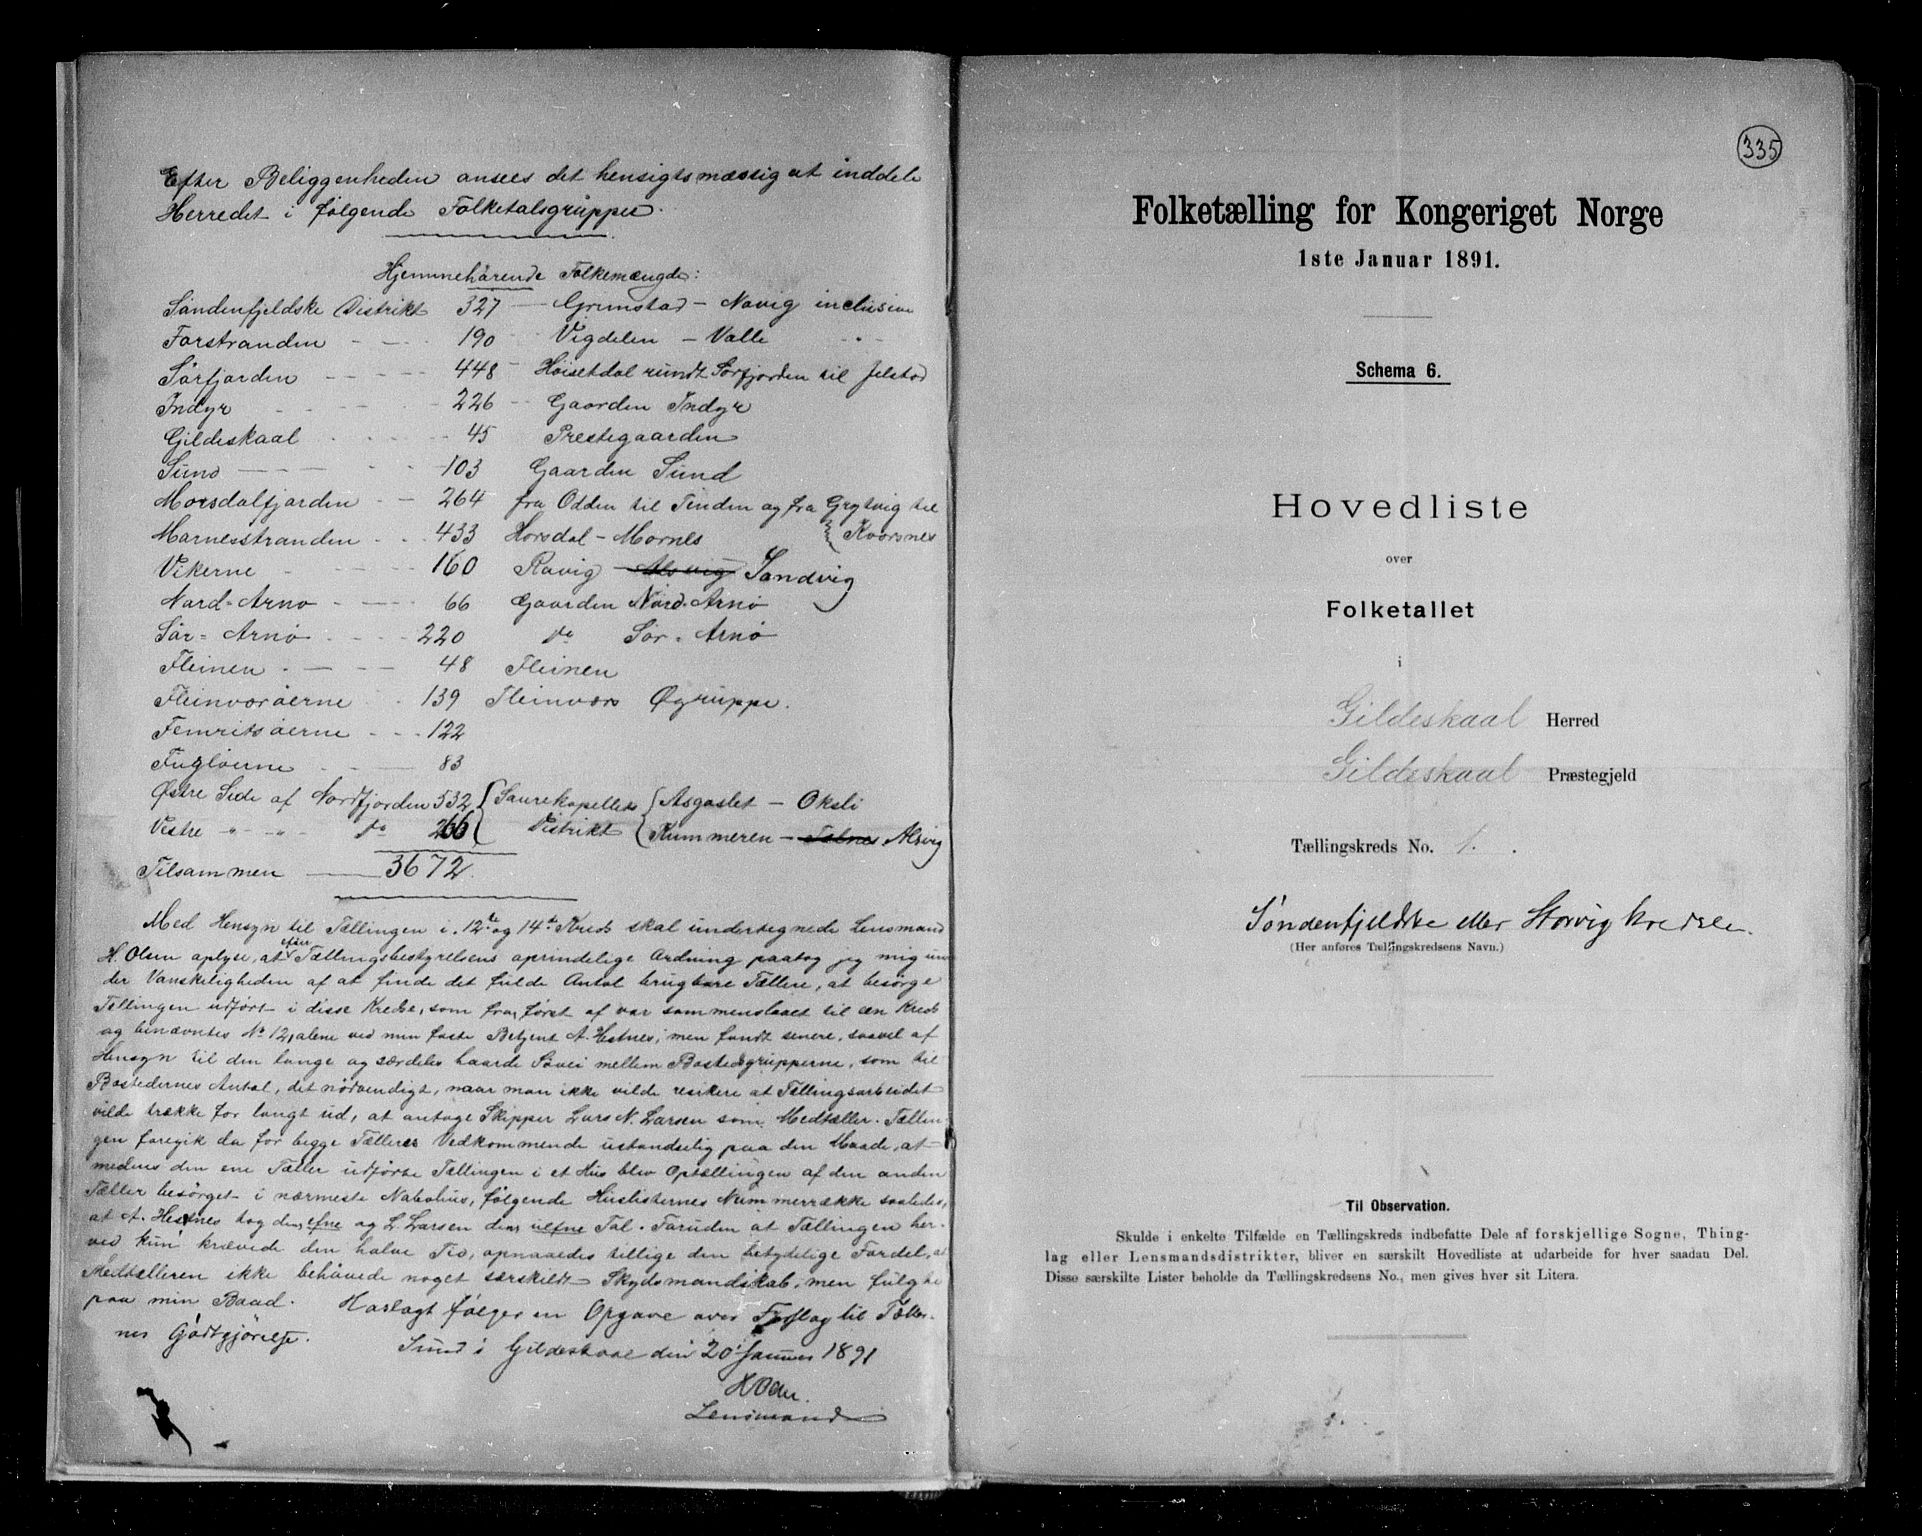 Efter Beliggenheden ansees det hensigtsmæssig at inddele
Herredet i følgende Folketalsgrupper.
Hjemmehørende Folkemængde:
Søndenfjeldske Distrikt 327 — Grimstad — Novig inclusive
Forstranden - - - 190 - Vigdelen — Valle - " -
Sørfjorden - - - - 448 - Høisetdal rundt Sørfjorden til Jelstad
Indyr - - - - 226 - Gaarden Indyr
Gildeskaal - - - - 45 Prestegaarden
Sund - - - 103 Gaarden Sund
Morsdalfjorden - - 264 fra Odden til Tinden og fra Grytvig til
Marnesstranden - - 433 Horsdal — Mornes } Kvorsnes
Vikerne - - - - 160 Ravig — Alsvig Sandvig
Nord-Arnø - - - 66 Gaarden Nord-Arnø
Sør-Arnø - - - 220 do Sør-Arnø
Fleinen - - - 48 Fleinen
Fleinværøerne - - 139 Fleinvær Øgruppe.
Femrisøerne - - - 122
Fugløerne - - 83
Østre Side af Nordfjorden 532 { Saurekapellets { Asgaslet — Oksli
Vestre " - " - do 266 { Distrikt { Kummeren — Tolnes Alsvig
Tilsammen — 3672
Med Hensyn til Tællingen i 12te og 14de Kreds skal undertegnede Lensmand
H. Olsen oplyse, at efter Tællingsbestyrelsens oprindelige Ordning paatog jeg mig un-
der Vanskeligheden af at finde det fulde Antal brugbare Tællere, at besørge
Tællingen udført i disse Kredse, som fra først af var sammenslaaet til en Kreds
og benævntes No 12, alene ved min faste Betjent A. Hestnes, men fandt senere, saavel af
Hensyn til den lange og særdeles haarde Søvei mellem Bostedsgrupperne, som til
Bostedernes Antal, det nødvendigt, naar man ikke vilde risikere at Tællingsarbeidet
vilde trække for langt ud, at antage Skipper Lars N. Larsen som Medtæller. Tællin-
gen foregik da for beggeÆlleres Vedkommende ustandselig paa den Maade, at
medens den ene Tæller udførte Tællingen i et Hus blev Optællingen af den anden
Tæller besørget i nærmeste Nabohus, følgende Huslisternes Nummerrække saaledes,
at A. Hestnes tog dens efne og L. Larsen dens uefne Tal. Foruden at Tællingen her-
ved kun krævede den halve Tid, opnaaedes tillige den betydelige Fordel, at
Medtælleren ikke behøvede noget særskildt Skydsmandskab, men fulgte
paa min Baad. Hoslagt følger en Opgave over Forslag til Tæller-
nes Godtgjørelse.
Sund i Gildeskaal den 20 Januar 1891
H Olsen
Lensmand
335
Folketælling for Kongeriget Norge
1ste Januar 1891.
Schema 6.
Hovedliste
over
Folketallet
i
Gildeskaal Herred
Gildeskaal Præstegjeld
Tællingskreds No. 1.
Søndenfjeldske eller Storvig kredse.
(Her anføres Tællingskredsens Navn.)
Til Observation.
Skulde i enkelte Tilfælde en Tællingskreds indbefatte Dele af forskjellige Sogne, Thing-
lag eller Lensmandsdistrikter, bliver en særskilt Hovedliste at udarbeide for hver saadan Del.
Disse særskilte Lister beholde da Tællingskredsens No., men gives hver sit Litera.